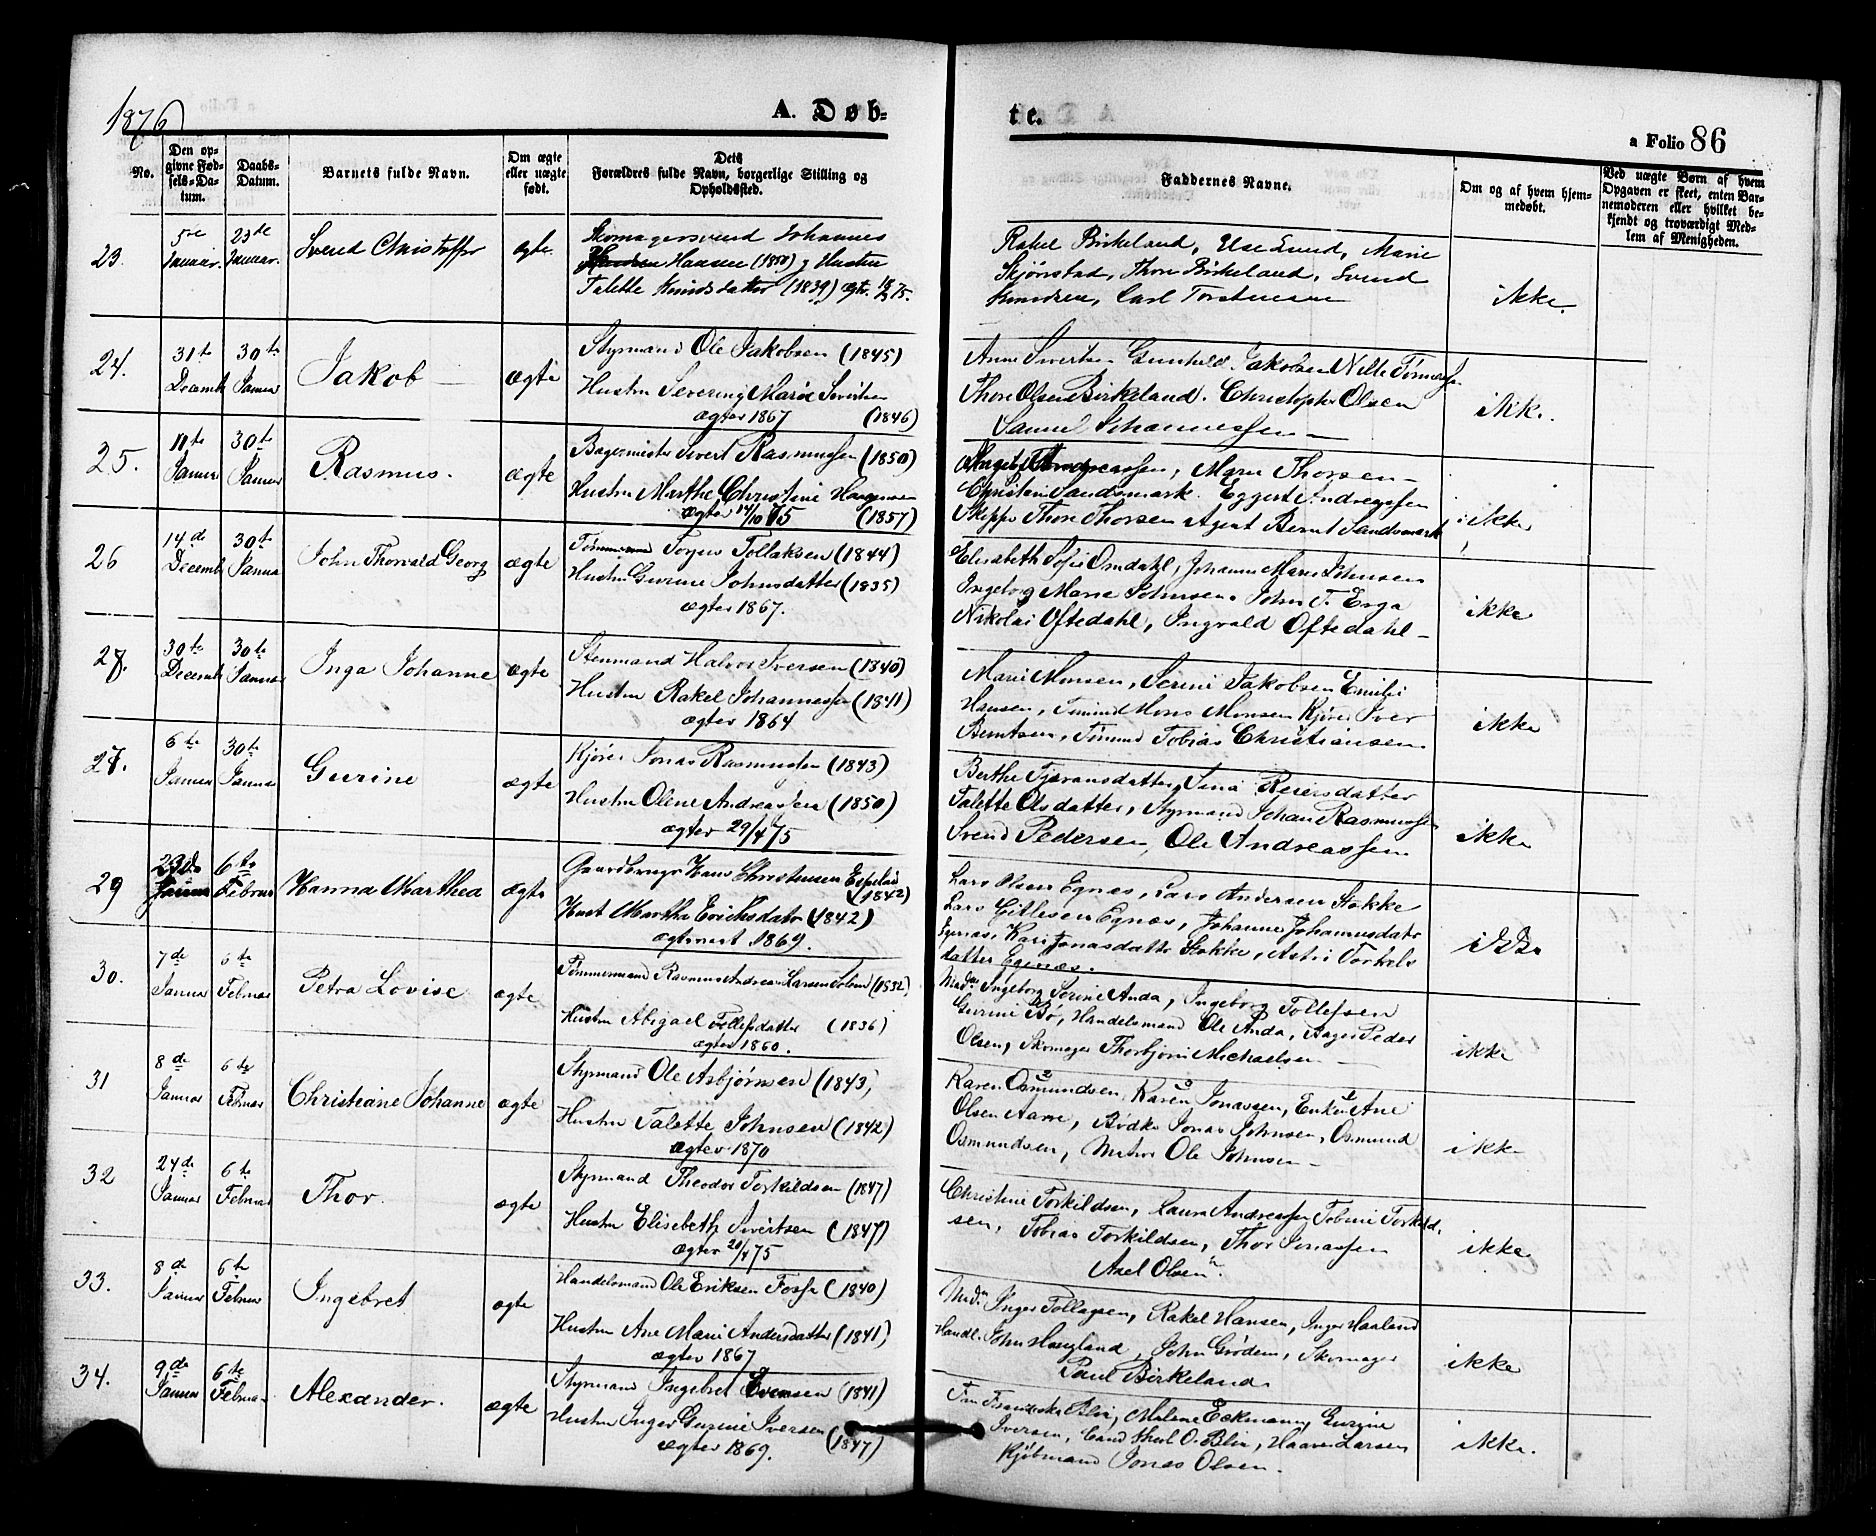 1876
A. Døb-
te.
a Folio 86
No.
Den op-
givne Fød-
sels-Da-
tum.
Daabs-
Datum.
Barnets fulde Navn.
Om ægte
eller uægte
født.
Dets
Forældres fulde Navn, borgerlige Stilling og
Opholdssted.
Faddernes Navne.
Om og af hvem hjem-
medøbt.
Ved uægte Børn af hvem
Opgaven er skeet, enten Bar-
nemoderen eller hvilket be-
kjendt og troværdigt Med-
lem af Menigheden.
23.
5te
Januar.
23de
Januar.
Svend Christoffer
ægte
Skomagersvend Johannes
Hansen (1850) g Hustru
Talette Knudsdatter (1839) ægtv. 75.
Rakel Birkeland, Else Lund, Marie
Skjørestad, Thore Birkeland, Svend
Knudsen, Carl Torstensen
ikke.
24.
31te
Decemb
30te
Januar
Jakob
ægte
Styrmand Ole Jakobsen (1845)
Hustru Severine Marie Sivertsen
ægtev 1867 (1846)
Anne Sivertsen Gunhild Jakobsen Nille Tønnesen
Thore Olsen Birkeland. Christopher Olsen
Samuel Johannessen
ikke.
25.
11te
Januar
30te
Januar
Rasmus.
ægte
Bagermester Sivert Rasmussen (1850)
Hustru Marthe Christine Haagensen
ægtev 14/10 75 (1857)
Andreassen, Marie Thorsen
Christine Sandsmark. Eggert Andreassen
Skipper Thore Thorsen Agent Bernt Sandsmark
ikke
26
14de
Decemb
30te
Januar
John Thorvald Georg
ægte
Tømmermand Torger Tollaksen (1844)
Hustru Gurine Johnsdatter (1835)
ægtev 1867.
Elisabeth Sofie Omdahl, Johanne Marie Johnsen
Ingeborg Marie Johnsen. John T. Erga
Nikolai Oftedahl, Ingvald Oftedahl
ikke
27.
30te
Decemb
30te
Januar
Inga Johanne
ægte
Stenmand Halvor Iversen (1840)
Hustru Rakel Johannessen (1841)
ægtev 1864
Marie Monsen, Serine Jakobsen Emilie
Hansen, Mons Monsen Kjører Iver
Berntsen, Tobias Christiansen.
ikke
28.
6te
Januar
30te
Januar
Gurine
ægte
Kjører Jonas Rasmussen (1843)
Hustru Olene Andreassen (1850)
ægtev 29/4 75
Berthe Tjøransdatter, Sina Reiersdatter
Talette Olsdatter, Styrmand Johan Rasmussen
Svend Pedersen, Ole Andreassen
ikke
29
23de
Januar
6te
Februar
Hanna Marthea
ægte
Gaardbruger Hans Christensen Espeland
(1842)
Hust Martha Eriksdatr (1842)
ægteviet 1869.
Lars Olsen Egnæs, Lars Andersen Stokke
Lars Gitlesen Egnæs, Johanne Johannesdatr
Egnæs, Kari Jonasdattr Stokke, Astri Torkels
datter Egnæs.
ikke
30.
7de
Januar
6te
Februar
Petra Lovise
ægte
Tømmermand Rasmus Andreas Larsen (1832)
Hustru Abigael Tollefsdatter (1836)
ægtev 1860.
Mad. Ingeborg Serine Anda, Ingeborg Tollefsen
Gurine Bø, Handelsmand Ole Anda, Bager Peder
Olsen, Skomager Thorbjørn Michaelsen
ikke
31
8de
Januar
6te
Februar
Christiane Johanne
ægte
Styrmand Ole Asbjørnsen (1843)
Hustru Talette Johnsen (1842)
ægtev 1870
Karen Osmundsen, Karen Jonassen, Enken Ane
Olsen Aarre, Bødker Jonas Johnsen, Osmund
Osmundsen, Matros Ole Johnsen
ikke
32
24de
Januar
6te
Februar
Thor.
ægte
Styrmand Theodor Torkildsen (1847)
Hustru Elisebeth Sivertsen (1847)
ægtev 20/4 75
Christine Torkildsen, Laura Andreassen Tobine Torkild-
sen, Tobias Torkildsen, Thor Jonassen
Axel Olsen.
ikke
33.
8de
Januar
6te
Februar
Ingebret
ægte
Handelsmand Ole Eriksen Fosse (1840)
Hustru Ane Marie Andersdatter (1841)
ægtev 1867
Mad. Inger Tollagsen, Rakel Hansen, Inger Haaland
Handl. John Haugland, John Grødem, Skomager
Paul Birkeland.
ikke
34.
9de
Januar
6te
Februar
Alexander.
ægte
Styrmand Ingebret Evensen (1841)
Hustru Inger Gurine Iversen
ægtev 1869. (1847)
Fru Franziska Blix, Malene Eckmann, Gurine
Iversen, Cand theol O. Blix, Haaver Larsen
Kjøbmand Jonas Olsen.
ikke.